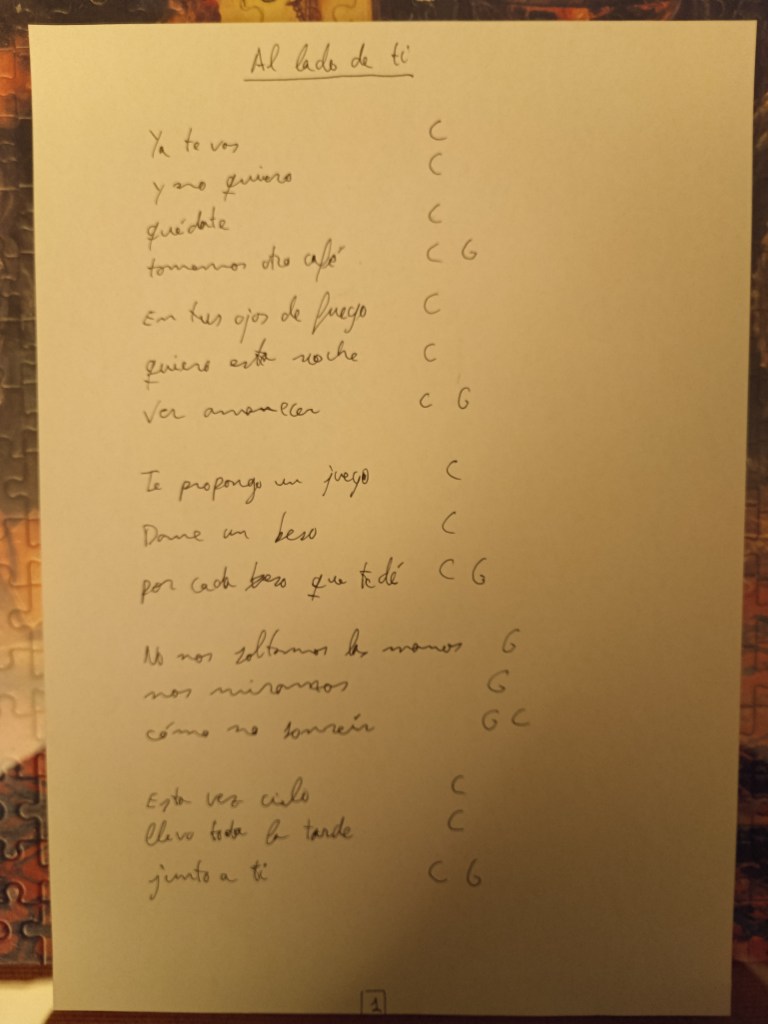 Al lado de ti
Ya te vas C
y no quiero C
quédate C
tomamos otro café C G
En tus ojos de fuego C
quiero esta noche C
ver amanecer C G
Te propongo un juego C
Dame un beso C
por cada beso que te dé C G
No nos soltamos las manos G
nos miramos G
cómo no sonreír G C
Esta vez cielo C
llevo toda la tarde C
junto a ti C G
1